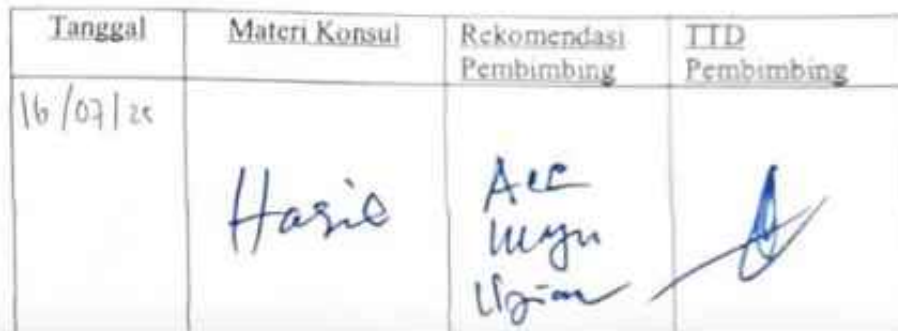 Tanggal Materi Konsul Rekomendasi Pembimbing TTD Pembimbing
16/07/25
Hasil
Acc
Maju
Ujian